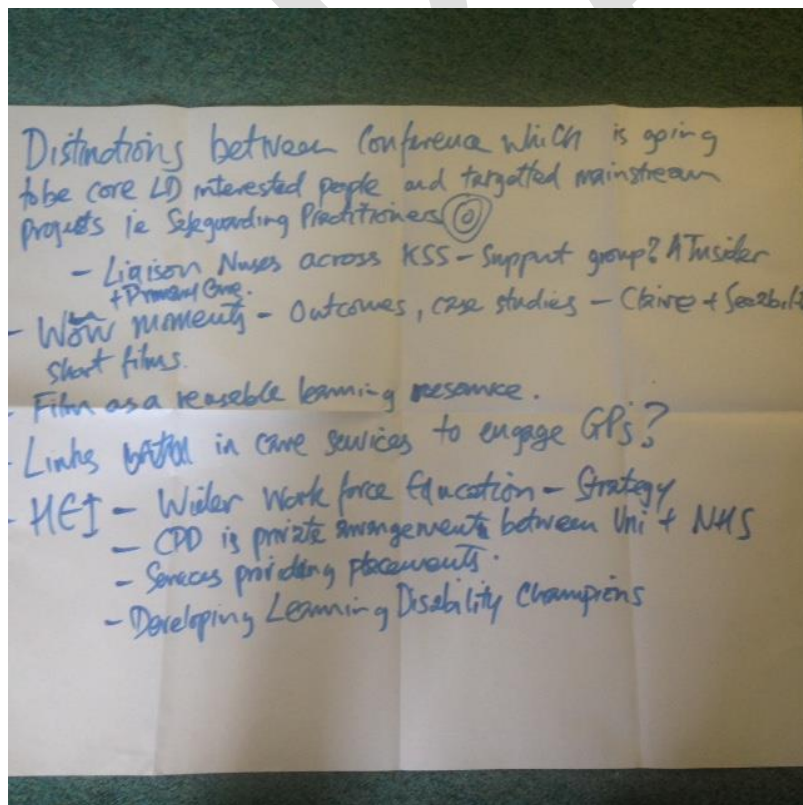 Distinctions between Conference which is going
to be core LD interested people and targetted mainstream
projects ie Safeguarding Practitioners
- Liaison Nurses across KSS - Support group?
+ Primary Care.
- Wow moments - Outcomes, case studies - Claire +
short films.
- Film as a reusable learning resource.
- Links in care services to engage GPs?
- HEI - Wider Workforce Education - Strategy
- CPD is private arrangements between Uni + NHS
- Services providing placements.
- Developing Learning Disability Champions